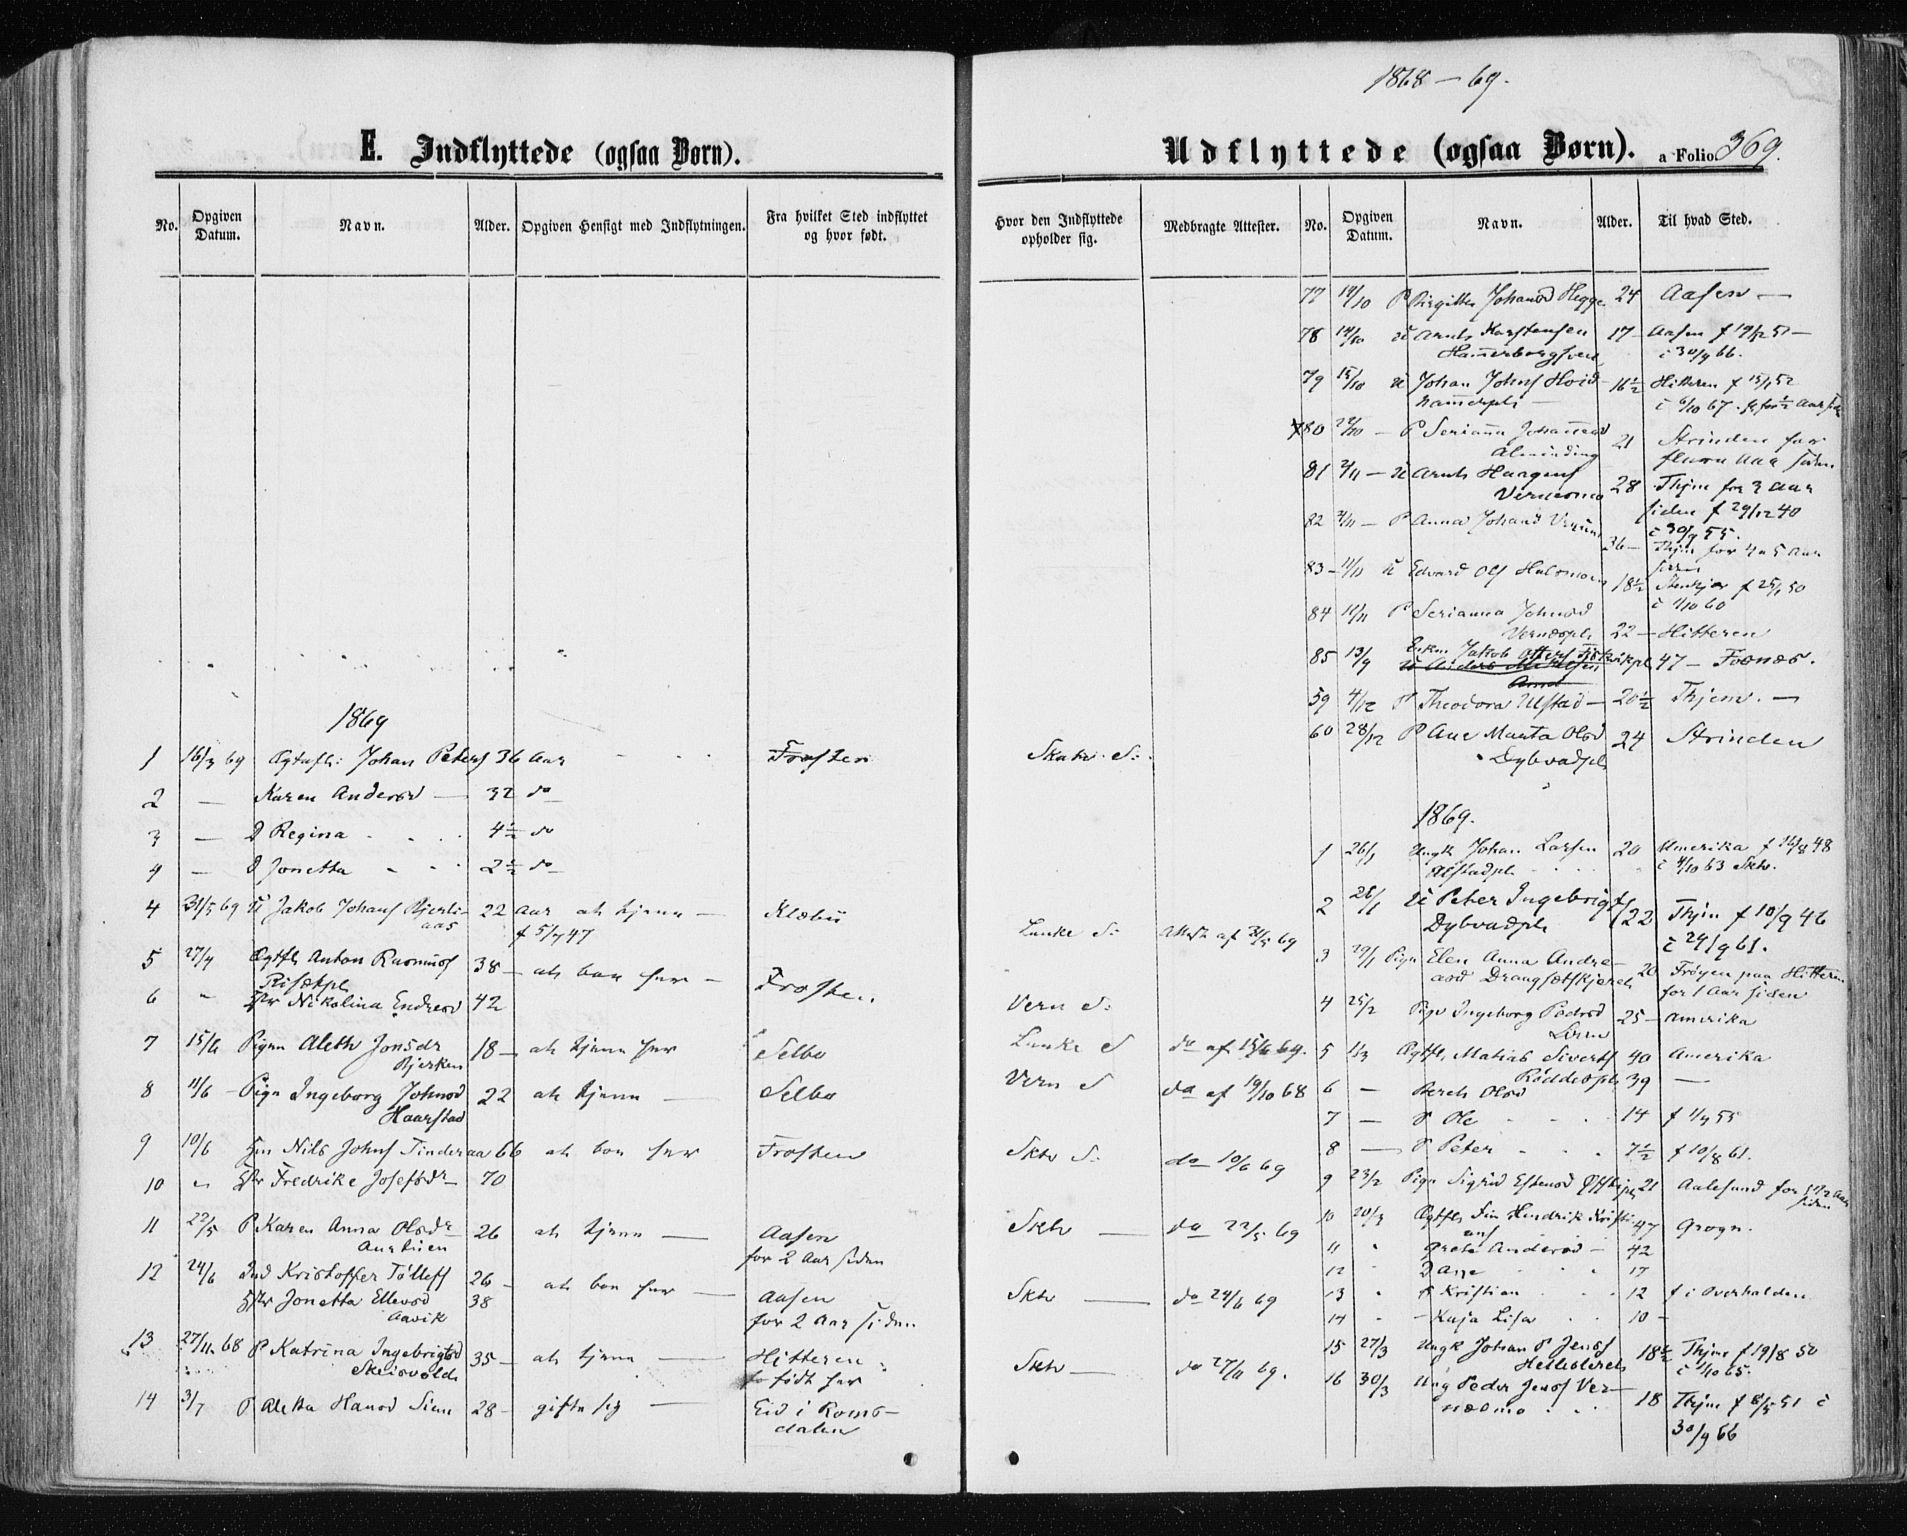 1868-69.
E. Indflyttede (ogsaa Børn).
Udflyttede (ogsaa Børn). a Folio 369.
No. Opgiven Datum. Navn. Alder. Opgiven Hensigt med Indflytningen. Fra hvilket Sted indflyttet og hvor født.
Hvor den Indflyttede opholder sig. Medbragte Attester. No. Opgiven Datum. Navn. Alder. Til hvad Sted.
1869
1 16/3 69 Johan Peters 36 Aar Frosten Skatv. S:
2 — Karen Andersd — 32 do
3 — D Regina 4½ do
4 — D Jonetta 2½ do
4 31/3 69 U Jakob Johans 22 Aar at tjene — Klæbu
aas f 5/7 47 Lanke S:
5 27/4 Anton Rasmuss 38 — at boe her — Frosten
6 " Nikolina Endresd 42 Vern S:
7 15/6 Pigen Aleth Jonsdr 18 — at tjene her Selbo Lanke S do af 15/6 69.
Bjerken
8 11/6 — Pige Ingeborg Johnsd 22 at tjene — Selbo Vern S do af 19/10 68
Haarstad
9 10/6 Nils Johns Tinderaa 66 at boe her Frosten Sktv S: do 10/6 69
10 " Fredrike Josefsdr 70
11 22/5 P Karen Anna Olsdr 26 at tjene — Aasen Sktv — do 22/5 69
for 2 Aar siden
12 24/6 Ind Kristoffer Tøllefs 26 — at boe her — Aasen Sktv — do 24/6 69
Jonetta Ellevsd 38 for 2 Aar siden
Aavik
13 27/11 68 P Katrina Ingebrigtsd 35 — at tjene — Hitteren Sktv — do 27/11 69.
født her
14 3/7 P Aletta Hansd 28 — gifte sig — Eid i Roms-
dalen
77 14/10 P Birgitte Johansd Hegge 24 Aasen —
78 14/10 U Arnt Karstensen 17 — Aasen f 19/12 51 —
c 30/9 66.
79 15/10 U Johan Johns Hoid- 16½ Hitteren f 15/1 52
c 6/10 67. for ½ Aar
80 22/10 — P Serianna 21 Strinden for
Alminding flere Aar siden
81 2/11 — U Arnt Haagens 28 Thjm for 2 Aar
siden f 29/12 40
c 30/9 55.
82 2/11 — P Anna Johansd 36 — Thjm for 4 a 5 Aar
siden
83 — 11/11 U Edvard Ols 18½ f 25/1 50
c 1/10 60
84 11/11 P Serianna Johnsd 22 — Hitteren
85 13/9 Enkm. Jakob 47 — Fosnæs.
59 4/12 P Theodora Ulstad — 20½ Thjem. —
60 28/12 P Ane Marta Olsd 24 Strinden
Dybvadpl
1869.
1 26/1 Ungk Johan Larsen 20 Amerika f 16/8 48
c 4/10 63 Sktv.
2 26/1 U Peter Ingebrigts 22 Thjm f 10/9 46
Dybvadpl c 29/9 61.
3 29/1 Pigen Elen Anna Andre- 20 Frøyen paa Hitteren
asd for 1 Aar siden
4 25/2 Pige Ingeborg Pedersd 25 — Amerika
5 1/3 Matias Siverts 40 Amerika
6 — Beret Olsd 39 —
7 — S Ole 14 f 1/4 55
8 — S Peter 7½ f 10/8 61.
9 23/2 Pige Sigrid Estensd 21 Aalesund for 1½ Aar
siden
10 20/3 Hendrik Kristi- 47 Grogn.
ans
11 " Grete Andersd — 42
12 " D Ane 17
13 " S Kristian 12 f i Overhalden
14 " — Kaja Lisa 10 —
15 27/3 Ungk Johan P Jenss 18½ Thjm f 19/8 50
c 1/10 65.
16 30/3 Ung Peder Jenss Ver- 18 Thjm f 8/5 51 c
næsmo 30/9 66